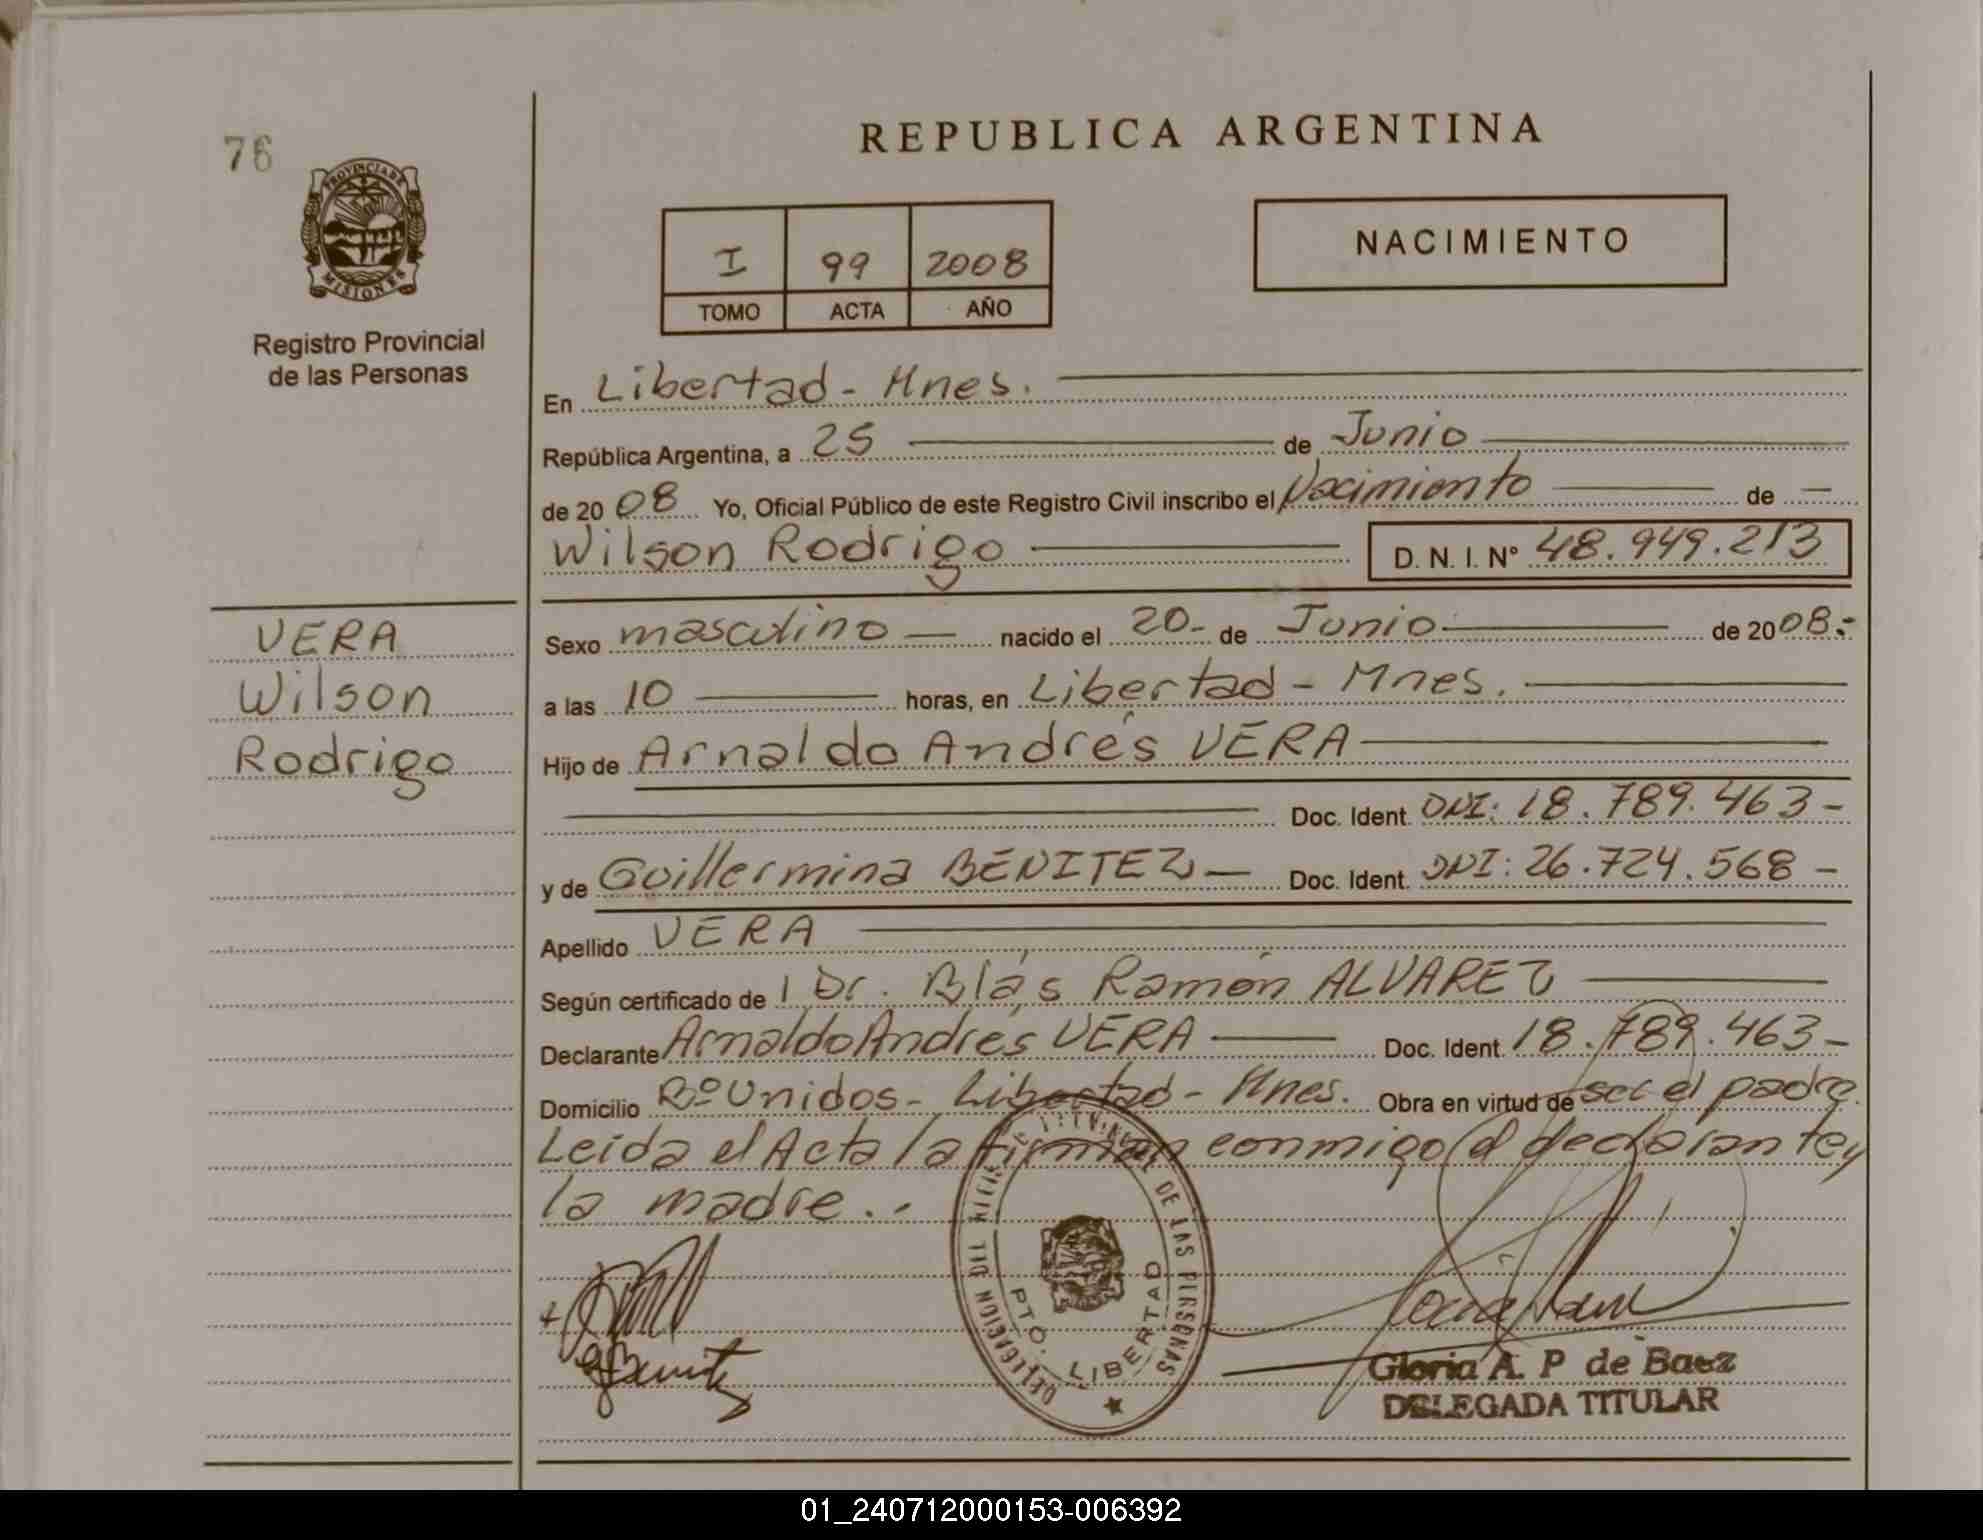 76
PROVINCIA DE
MISIONES
Registro Provincial
de las Personas
VERA
Wilson
Rodrigo
REPUBLICA ARGENTINA
I 99 2008
TOMO ACTA AÑO
NACIMIENTO
En Libertad - Mnes.
República Argentina, a 25 de Junio
de 2008 Yo, Oficial Público de este Registro Civil inscribo el Nacimiento de —
Wilson Rodrigo D. N. I. N° 48.949.213
Sexo masculino — nacido el 20- de Junio de 2008.-
a las 10 horas, en Libertad - Mnes.
Hijo de Arnaldo Andrés VERA
Doc. Ident. DNI: 18.789.463-
y de Guillermina BENITEZ — Doc. Ident. DNI: 26.724.568-
Apellido VERA
Según certificado de l Dr. Blás Ramón ALVAREZ
Declarante Arnaldo Andrés VERA Doc. Ident. 18.789.463-
Domicilio Bº Unidos - Libertad - Mnes. Obra en virtud de ser el padre.
Leída el Acta la firman conmigo el declarante y
la madre..-
DELEGACION DEL REGISTRO PROVINCIAL DE LAS PERSONAS
PTO. LIBERTAD
Gloria A. P de Baez
DELEGADA TITULAR
01_240712000153-006392